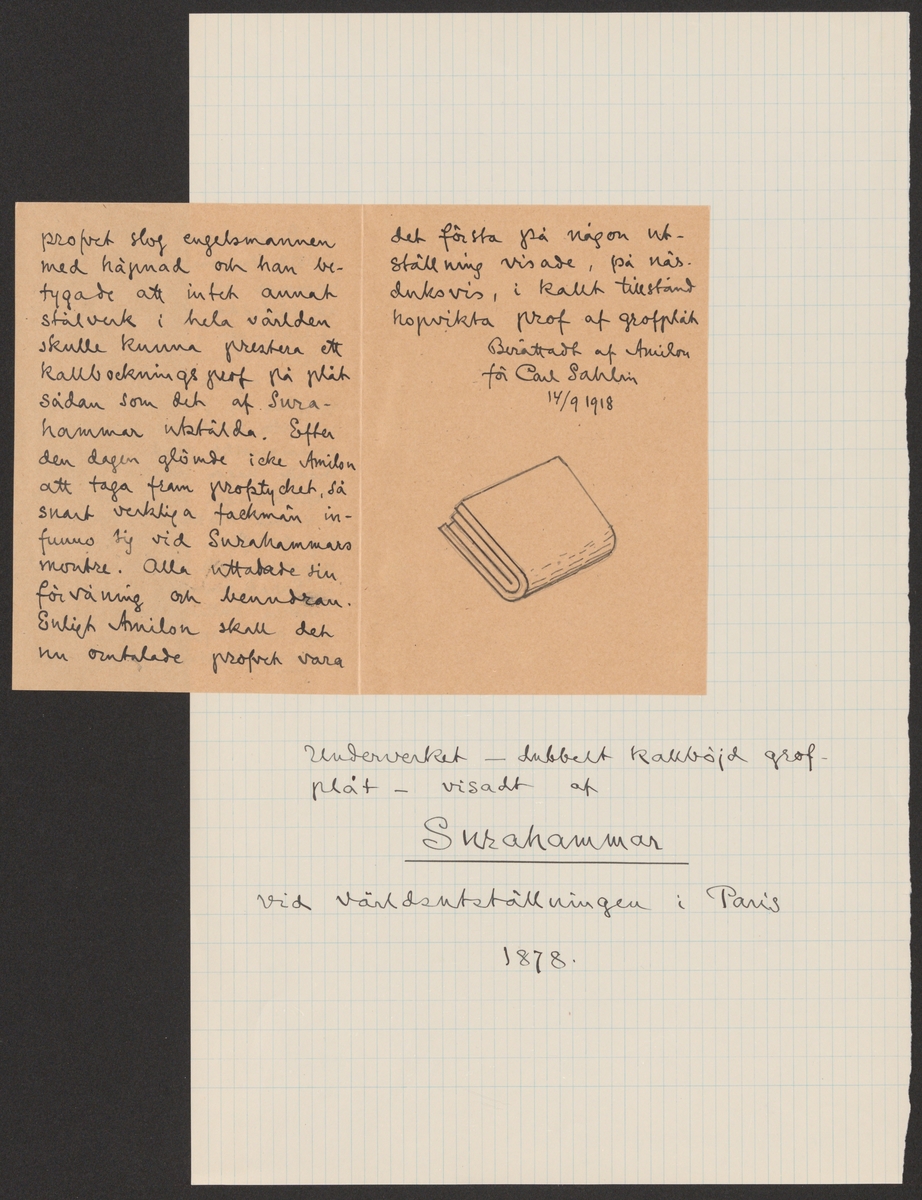 profvet slog engelsmannen
med häpnad och han be-
tygade att intet annat
stålverk i hela världen
skulle kunna prestera ett
kallbocknings prof på plåt
sådan som det af Sura-
hammar utstälda. Efter
den dagen glömde icke Amilon
att taga fram profstycket, så
snart verkliga fackmän in-
funno sig vid Surahammars
montre. Alla uttalade sin
förvåning och beundran.
Enligt Amilon skall det
nu omtalade profvet vara
det första på någon ut-
ställning visade, på näs-
duksvis, i kallt tillstånd
hopvikta prof af grofplåt
Berättadt af Amilon
för Carl Sahlin
14/9 1918
Underverket – dubbelt kallböjd grof-
plåt – visadt af
Surahammar
vid världsutställningen i Paris
1878.